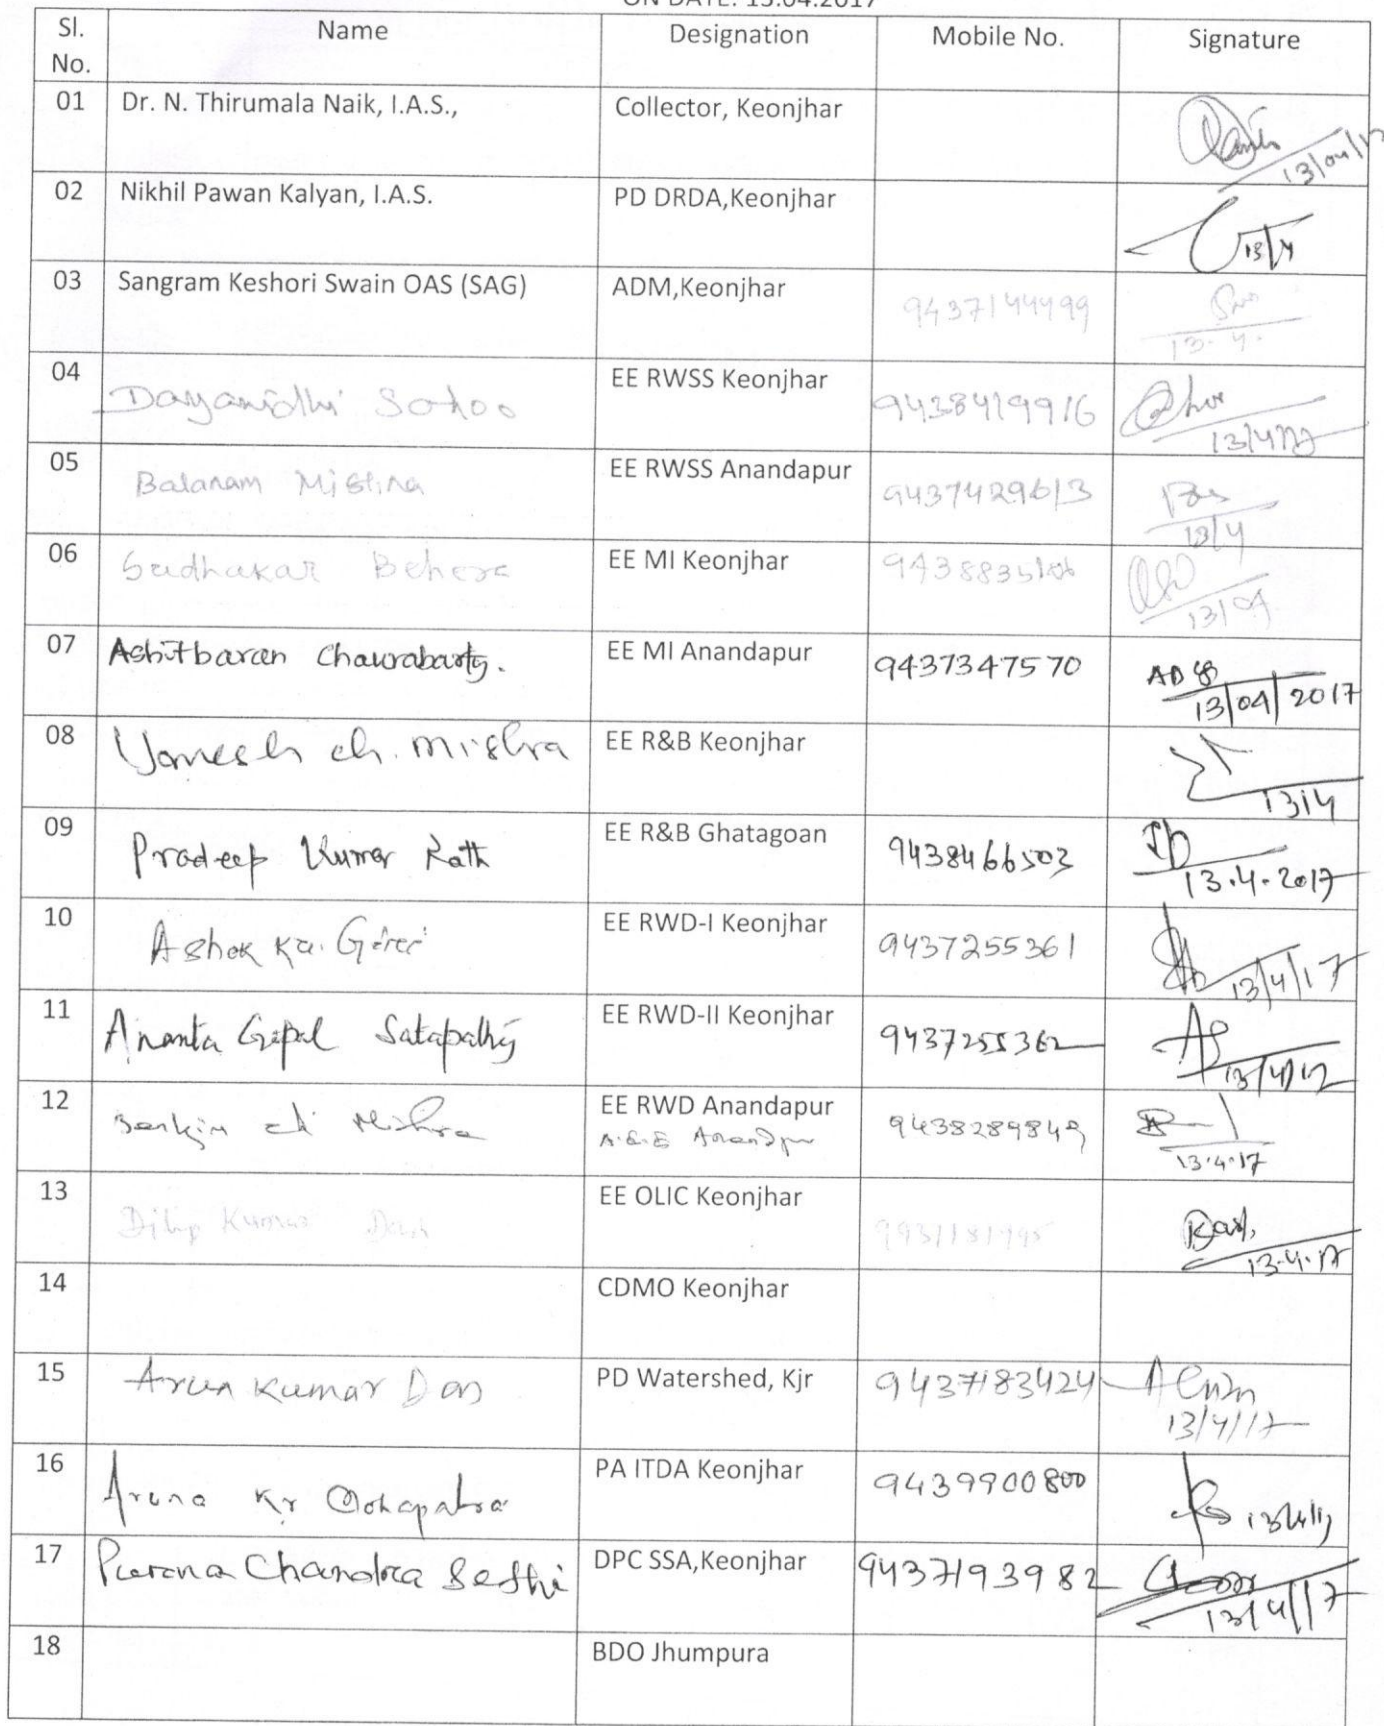 ON DATE: 13.04.2017
Sl. No. Name Designation Mobile No. Signature
01 Dr. N. Thirumala Naik, I.A.S., Collector, Keonjhar 13/04/17
02 Nikhil Pawan Kalyan, I.A.S. PD DRDA,Keonjhar 13/4
03 Sangram Keshori Swain OAS (SAG) ADM,Keonjhar 9437144499 13.4.
04 Dayanidhi Sahoo EE RWSS Keonjhar 9438419916 13/4/17
05 Balaram Mishra EE RWSS Anandapur 9437429613 13/4
06 Sudhakar Behera EE MI Keonjhar 13/04
07 Ashitbaran Chakrabarty. EE MI Anandapur 9437347570 13/04/2017
08 Umesh ch. Mishra EE R&B Keonjhar 13/4
09 Pradeep Kumar Rath EE R&B Ghatagoan 9438466503 13.4.2017
10 Ashok Ku. Giri EE RWD-I Keonjhar 9437255361 13/4/17
11 Ananta Gopal Satapathy EE RWD-II Keonjhar 9437255362 13/4/17
12 Bankim ch Mishra EE RWD Anandapur 9438289849 13.4.17
A.E.E Anandpur
13 Dilip Kumar Dash EE OLIC Keonjhar Dash, 13.4.17
14 CDMO Keonjhar
15 Arun Kumar Das PD Watershed, Kjr 9437183424 13/4/17
16 Aruna Kr Mohapatra PA ITDA Keonjhar 9439900800 13/4/17
17 Purna Chandra Sethi DPC SSA,Keonjhar 9437193982 13/4/17
18 BDO Jhumpura